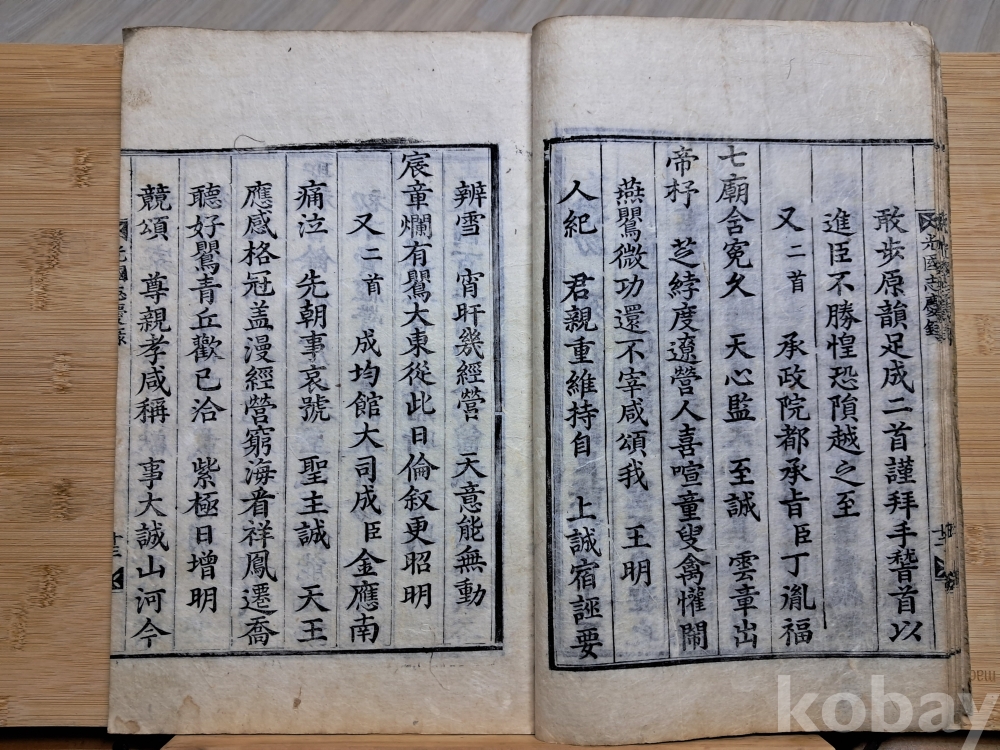 敢步原韻足成二首謹拜手稽首以
進臣不勝惶恐隕越之至
又二首 承政院都承旨臣丁胤福
七廟含冤久 天心監 至誠 雲章出
帝杼 芝綍度遼營人喜喧童叟禽懽鬧
燕鸎微功還不宰咸頌我 王明
人紀 君親重維持自 上誠宿誣要
光國志慶錄
辨雪 宵旰幾經營 天意能無動
宸章爛有鸎大東從此日倫叙更昭明
又二首 成均館大司成臣金應南
痛泣 先朝事哀號 聖主誠 天王
應感格冠盖漫經營窮海看祥鳳遷喬
聽好鸎青丘歡已洽 紫極日增明
競頌 尊親孝咸稱 事大誠山河今
光國志慶錄
十三
kobay